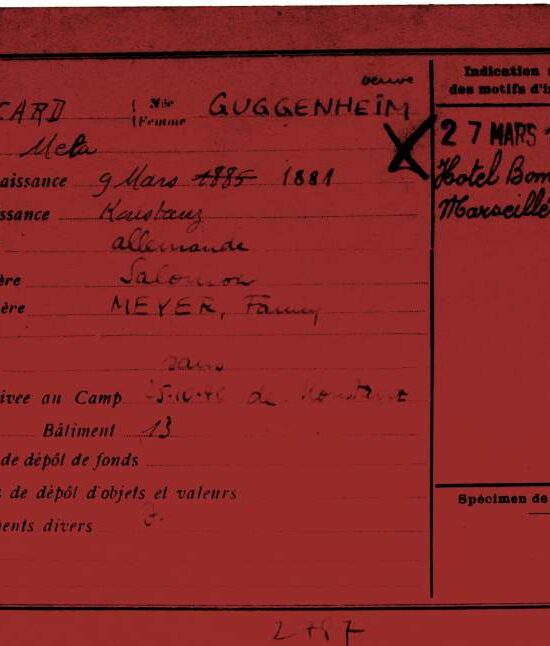 veuve
CARD { Née GUGGENHEIM
{ Femme
Meta
aissance 9 Mars 1885 1881
ssance Konstanz
allemande
ère Salomon
ère MEYER, Fanny
sans
ivee au Camp 25.10.40 de Konstanz
Bâtiment 13
de dépôt de fonds
de dépôt d'objets et valeurs
ents divers
Indication
des motifs d'i
27 MARS
Hotel Bom
Marseille
Spécimen de